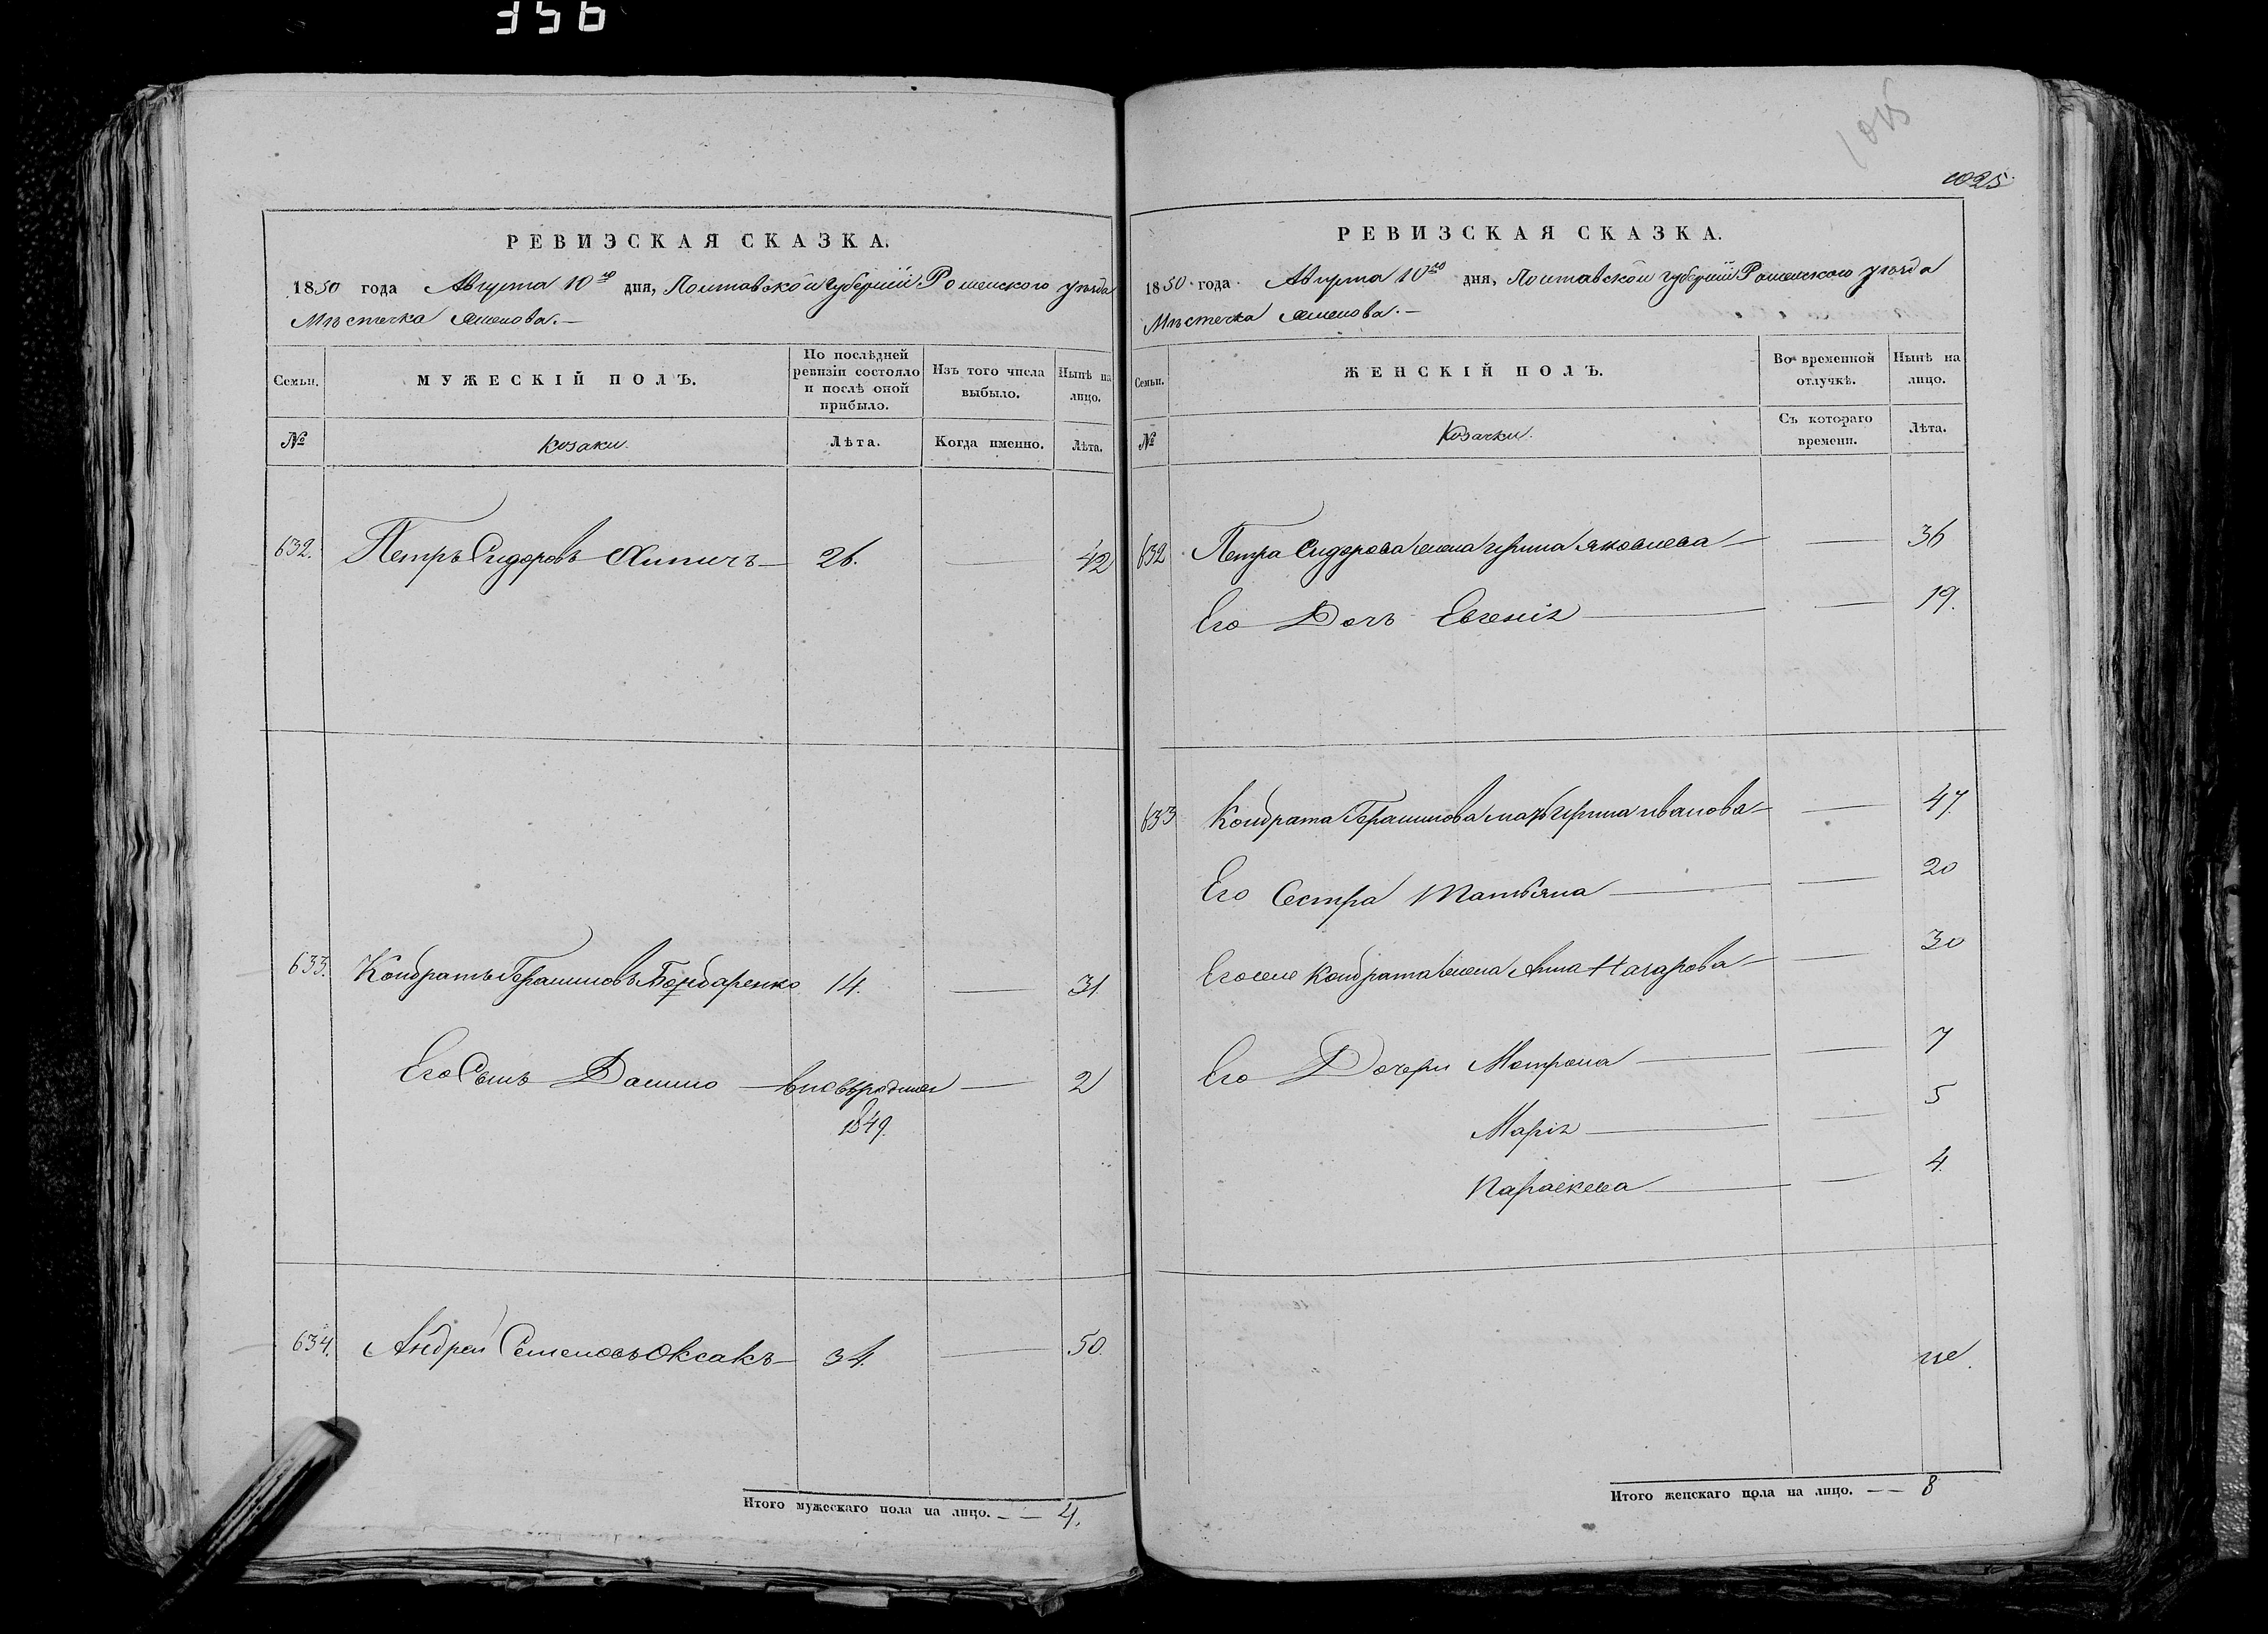 356
РЕВИЗСКАЯ СКАЗКА.
1850 года Августа 10го дня, Полтавской Губерніи Роменского уѣзда
Мѣстечка
Семьи.
МУЖЕСКІЙ ПОЛЪ.
По послѣдней ревизіи состояло и послѣ оной прибыло.
Изъ того числа выбыло.
Нынѣ на лицо.
№
Козаки.
Лѣта.
Когда именно.
Лѣта.
632. Петръ Сидоровъ 26. — 42
633. Кондратъ Герасимовъ Бондаренко 14. — 31
Его Сынъ Данило — 2
1849.
634. Андрей Семеновъ Оксакъ — 34. — 50.
Итого мужескаго пола на лицо. — — 4.
1025
1025
РЕВИЗСКАЯ СКАЗКА.
1850 года Августа 10го дня, Полтавской Губерніи Роменского уѣзда
Мѣстечка
Семьи.
ЖЕНСКІЙ ПОЛЪ.
Во временной отлучкѣ.
Нынѣ на лицо.
№
Козачки.
Съ котораго времени.
Лѣта.
632 Петра Сидорова жена Ирина Яковлева — — 36
Его Дочь Евгенія — — 19.
633 Кондрата Герасимова мать Ирина Иванова — — 47.
Его Сестра Татьяна — — 20
Его же Кондрата жена Анна Назарова — — 30
Его Дочери Мотрона — — 7
Марія — — 5
Параскева — — 4.
Итого женскаго пола на лицо. — — 8